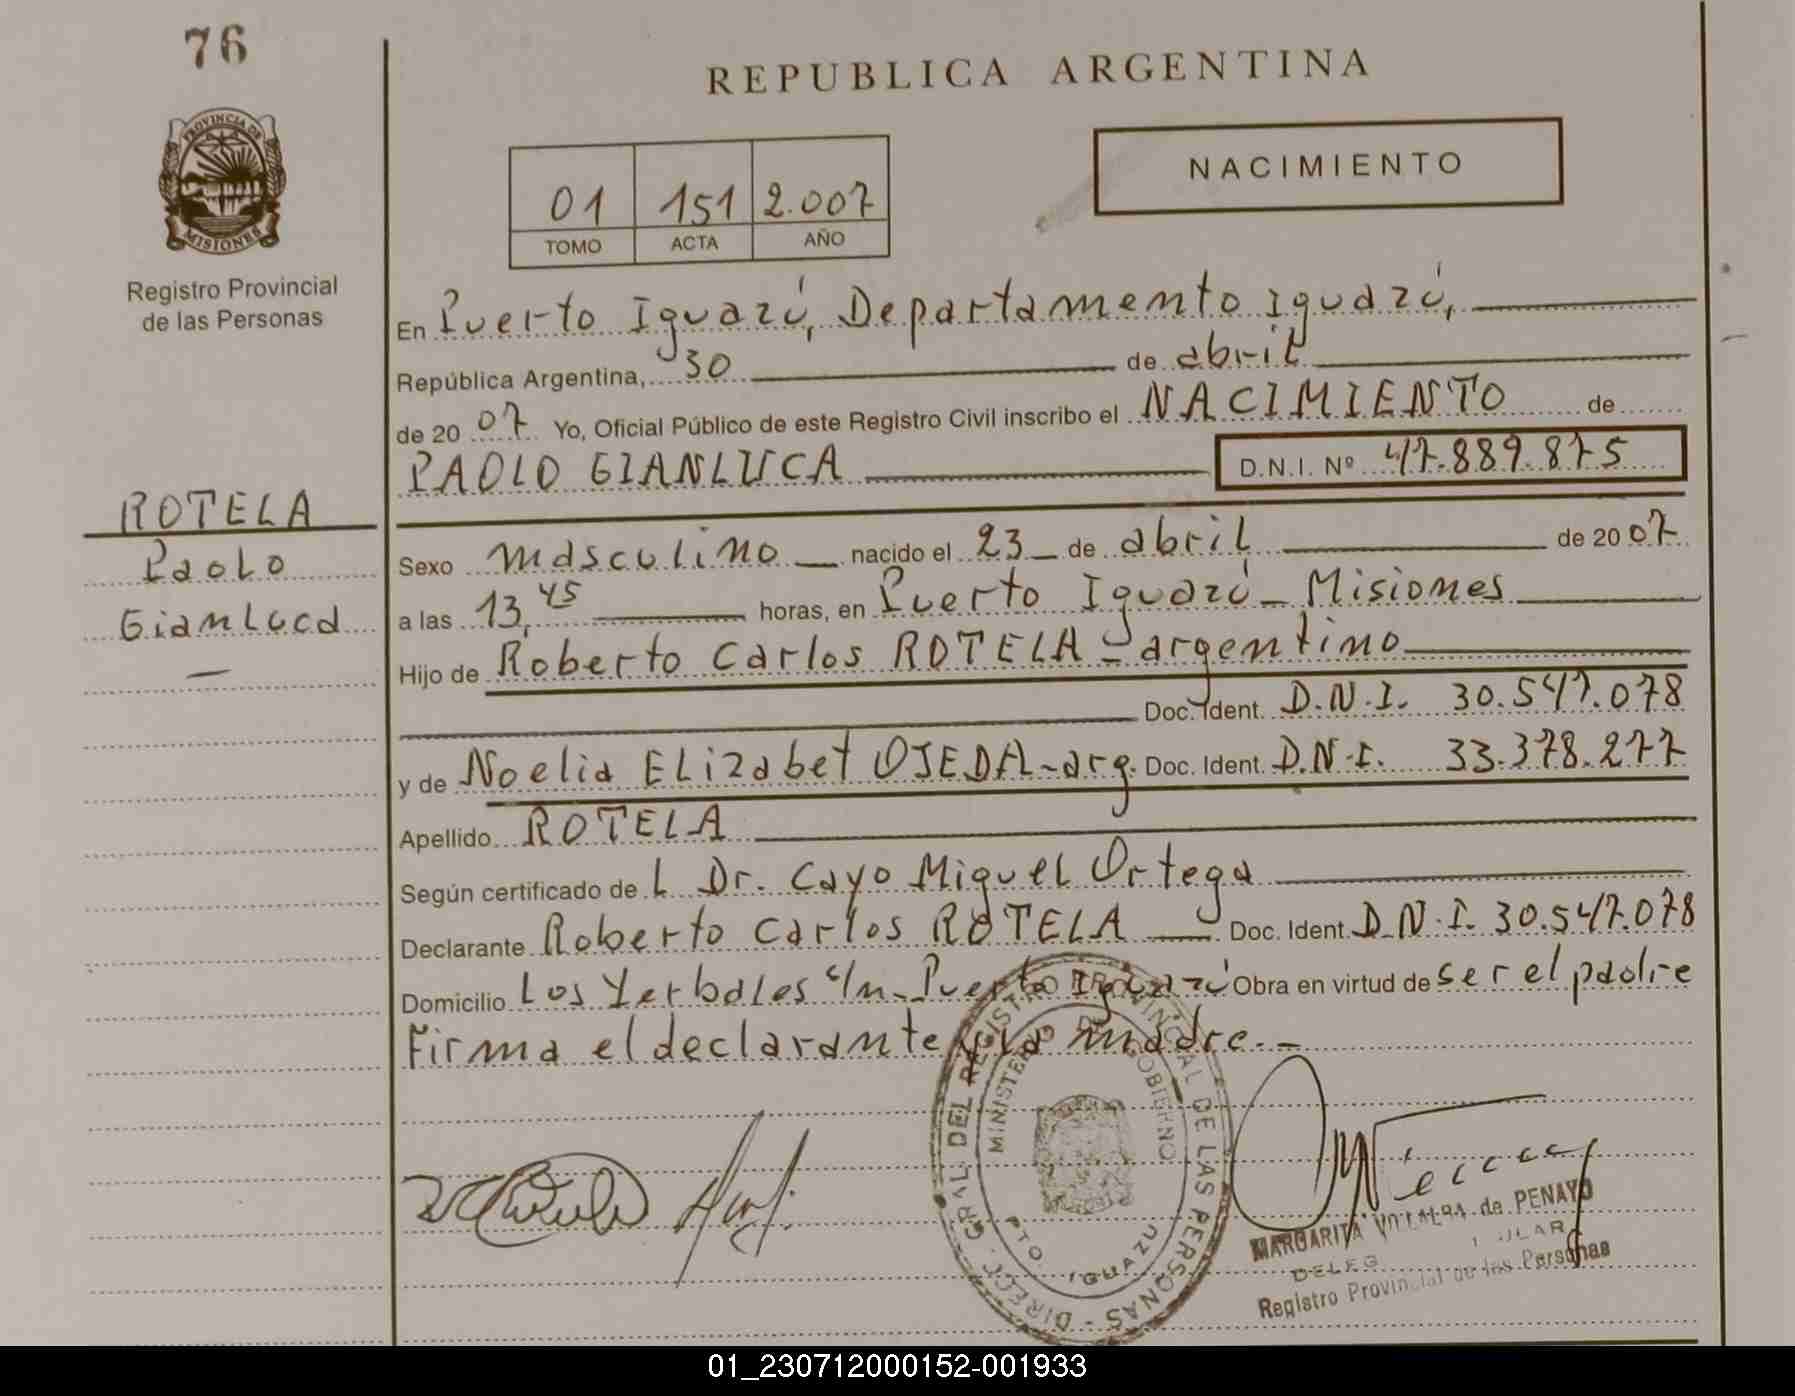 76
REPUBLICA ARGENTINA
PROVINCIA DE
MISIONES
Registro Provincial
de las Personas
NACIMIENTO
01 151 2.007
TOMO ACTA AÑO
En Puerto Iguazú, Departamento Iguazú,
República Argentina, 30 de abril
de 20 07 Yo, Oficial Público de este Registro Civil inscribo el NACIMIENTO de
PAOLO GIANLUCA D.N.I. Nº 47.889.875
ROTELA
Paolo
Gianluca
Sexo masculino nacido el 23 de abril de 20 07
a las 13,45 horas, en Puerto Iguazú - Misiones
Hijo de Roberto Carlos ROTELA - argentino
Doc. Ident. D.N.I. 30.547.078
y de Noelia Elizabet OJEDA - arg. Doc. Ident. D.N.I. 33.378.277
Apellido ROTELA
Según certificado de L Dr. Cayo Miguel Ortega
Declarante Roberto Carlos ROTELA Doc. Ident. D.N.I. 30.547.078
Domicilio Los Yerbales s/n - Puerto Iguazú Obra en virtud de ser el padre
Firma el declarante y la madre.-
DIREC. GRAL. DEL REGISTRO PROVINCIAL DE LAS PERSONAS -
MINISTERIO DE GOBIERNO
PTO. IGUAZU
MARGARITA VILLALBA de PENAYO
Registro Provincial de las Personas
01_230712000152-001933